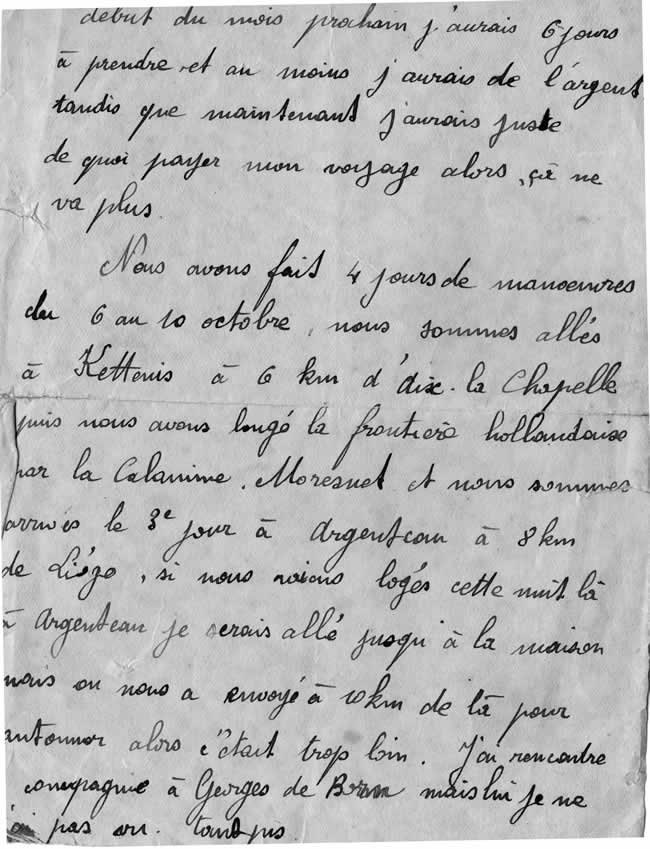 début du mois prochain j'aurais 6 jours
à prendre et au moins j'aurais de l'argent
tandis que maintenant j'aurais juste
de quoi payer mon voyage alors, çà ne
va plus.
Nous avons fait 4 jours de manoeuvres
du 6 au 10 octobre, nous sommes allés
à Kettenis à 6 km d'Aix-la Chapelle
puis nous avons longé la frontière hollandaise
par la Calamine, Moresnet et nous sommes
arrivés le 3e jour à Argenteau à 8 km
de Liége, si nous avions logés cette nuit là
à Argenteau je serais allé jusqu'à la maison
mais on nous a envoyé à 10 km de là pour
cantonner alors c'était trop loin. J'ai rencontré
compagnie à Georges de mais lui je ne
l'ai pas vu. tant pis.